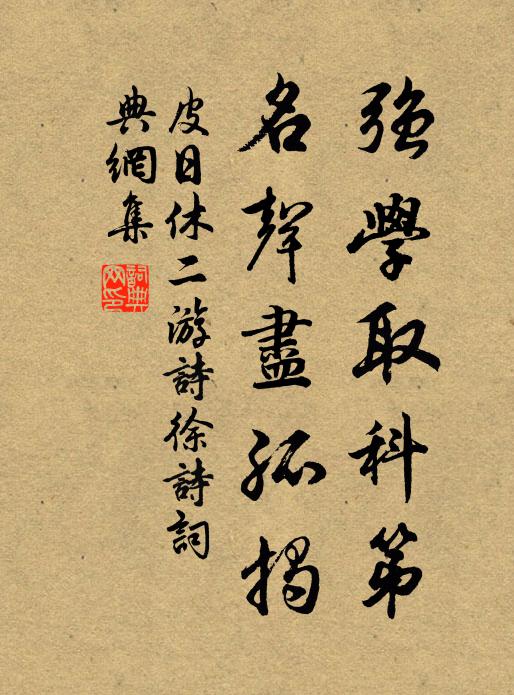 強學取科第
名聲盡孤揭
皮日休二游詩徐詩詞
典網集
詞典
网印